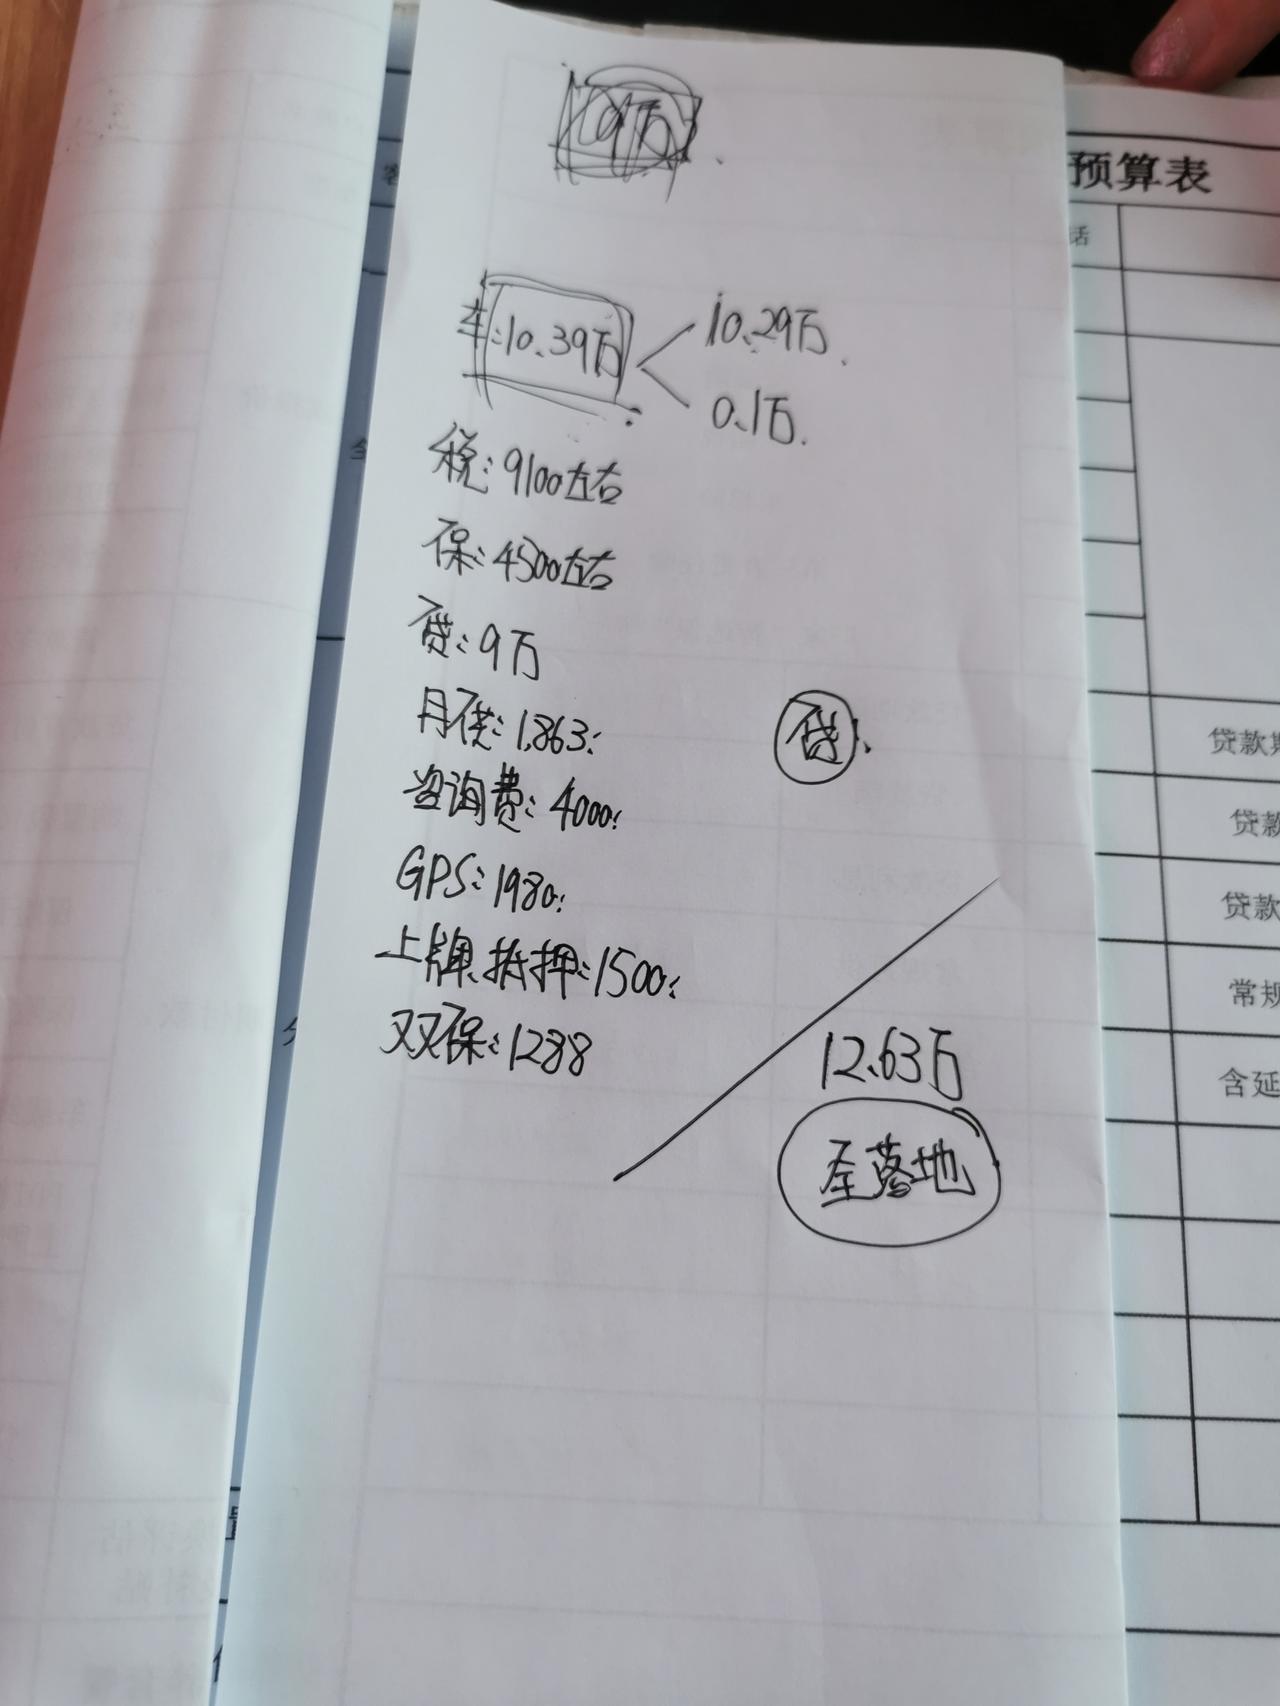 9万
预算表
话
车:10.39万
10.29万
0.1万
税:9100左右
保:4500左右
贷:9万
月供:1863
贷
贷款
咨询费:4000
贷款
GPS:1980
贷款
上牌.抵押:1500
常规
双保:1288
12.63万
含延
全落地